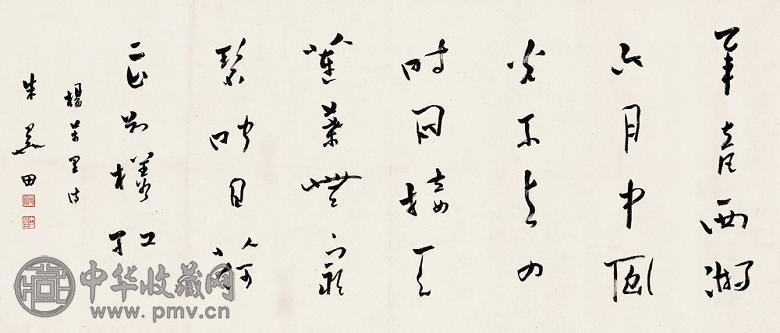 畢竟西湖
六月中風
光不与四
时同接天
蓮葉無窮
碧映日荷
花别樣红
楊萬里诗
朱关田
中华收藏网
www.pmv.cn